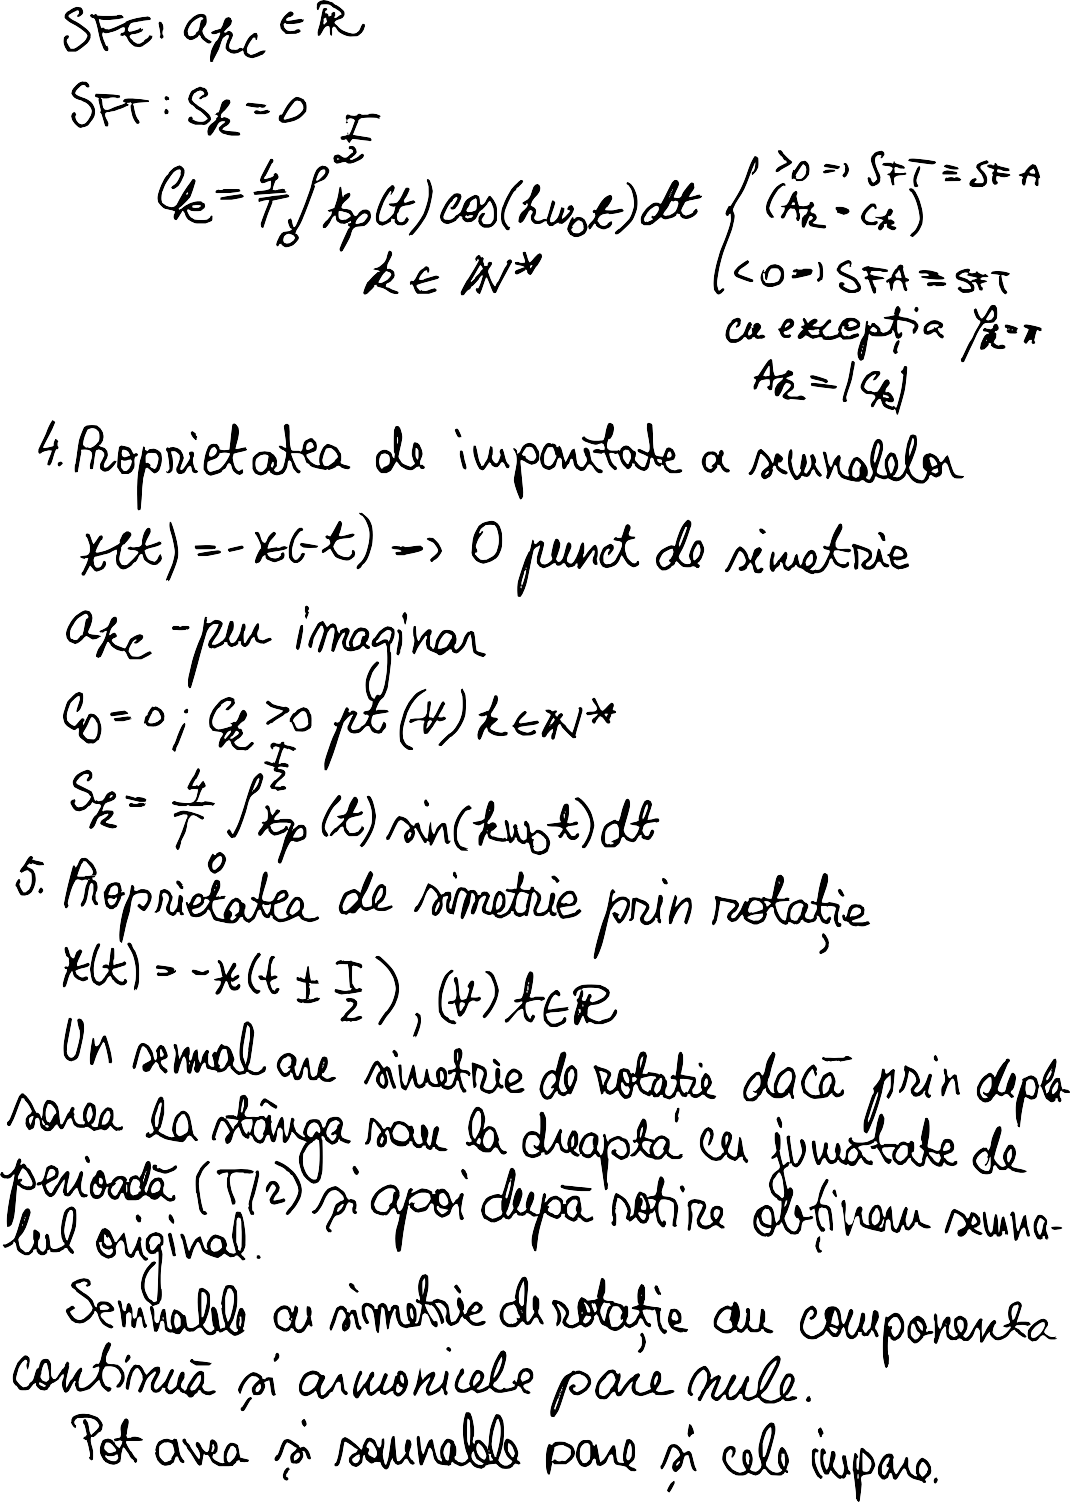 SFE: a_kc ∈ ℝ
SFT: S_k = 0
C_k = 4/T ∫_0^{T/2} x_p(t) cos(kω_0t) dt { >0 => SFT ≡ SFA
(A_k = C_k)
k ∈ ℕ*
<0 => SFA ≡ SFT
cu excepția φ_k = π
A_k = |C_k|
4. Proprietatea de imparitate a semnalelor
x(t) = -x(-t) -> O punct de simetrie
a_kc - pur imaginar
C_0 = 0; C_k >0 pt (∀) k ∈ ℕ*
S_k = 4/T ∫_0^{T/2} x_p(t) sin(kω_0t) dt
5. Proprietatea de simetrie prin rotație
x(t) = -x(t ± T/2), (∀) t ∈ ℝ
Un semnal are simetrie de rotație dacă prin depla-
sarea la stânga sau la dreapta cu jumătate de
perioadă (T/2) și apoi după rotire obținem semna-
lul original.
Semnalele cu simetrie de rotație au componenta
continuă și armonicele pare nule.
Pot avea și semnalele pare și cele impare.